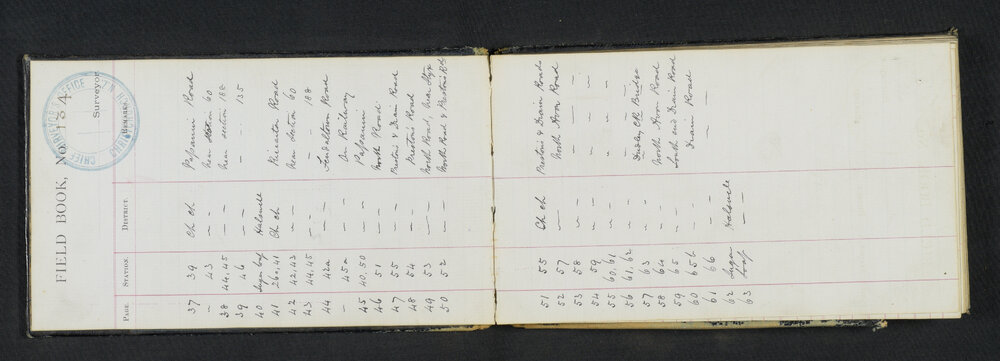 FIELD BOOK, No. 134
Surveyor.
CHIEF SURVEYOR'S OFFICE
PAGE. STATION. DISTRICT. REMARKS.
37 39 Ch Ch Papanui Road
– 43 – – Near Section 60
38 44,45 – – Near section 188
39 46 – – – . – 135
40 Sugar loaf Halswell
41 260,41 Ch Ch Riccarton Road
42 42,43 – – Near Section 60
43 44,45 – – – 188
44 42a – – Road
– 45a – – On Railway
45 40,50 – – Papanui
46 51 – – North Road
47 55 – – Preston's & Drain Road
48 54 – – Preston's Road
49 53 – – North Road, Near Styx
50 52 – – North Road & Preston's Rd
51 55 Ch Ch Preston's & Drain Roads
52 57 – North Avon Road
53 58 – – – – –
54 59 – – – – –
55 60,61 – – – – –
56 61,62 – – – –
57 63 – – Dudley Ck Bridge
58 64 – – North Avon Road
59 65 – – South end Drain Road
60 65b Drain Road
61 66 – – – –
62 Sugar Halswell
63 Loaf – –